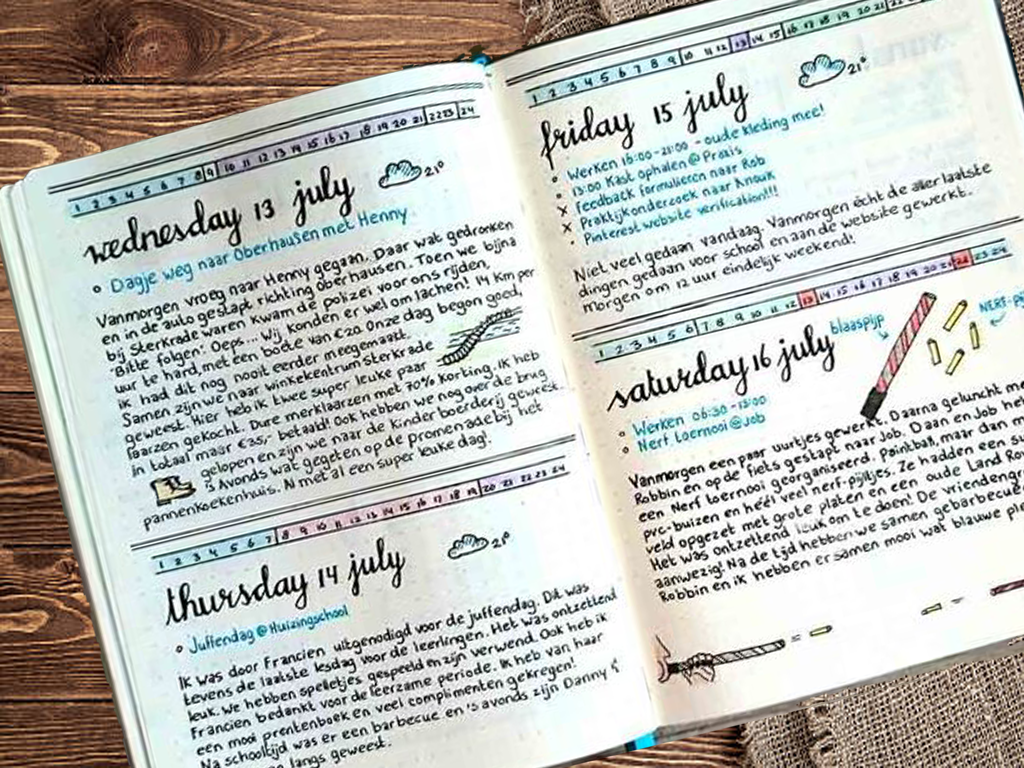 1 2 3 4 5 6 7 8 9 10 11 12 13 14 15 16 17 18 19 20 21 22 23 24
wednesday 13 july
21°
Dagje weg naar Oberhausen met Henny
Vanmorgen vroeg naar Henny gegaan. Daar wat gedronken
en in de auto gestapt richting Oberhausen. Toen we bijna
bij Sterkrade waren kwam de polizei voor ons rijden,
'Bitte folgen'. Oeps... Wij konden er wel om lachen! 14 km per
uur te hard, met een boete van €20. Onze dag begon goed,
ik had dit nog nooit eerder meegemaakt.
Samen zijn we naar winkelcentrum Sterkrade
geweest. Hier heb ik twee super leuke paar
laarzen gekocht. Dure merklaarzen met 70% korting. Ik heb
in totaal maar €35,- betaald! Ook hebben we nog over de brug
gelopen en zijn we naar de kinderboerderij geweest.
's Avonds wat gegeten op de promenade bij het
pannenkoekenhuis. Al met al een super leuke dag!
1 2 3 4 5 6 7 8 9 10 11 12 13 14 15 16 17 18 19 20 21 22 23 24
thursday 14 july
21°
Juffendag @ Huizingschool
Ik was door Francien uitgenodigd voor de juffendag. Dit was
tevens de laatste lesdag voor de leerlingen. Het was ontzettend
leuk. We hebben spelletjes gespeeld en zijn verwend. Ook heb ik
Francien bedankt voor de leerzame periode. Ik heb van haar
een mooi prentenboek en veel complimenten gekregen!
Na schooltijd was er een barbecue en 's avonds zijn Danny
langs geweest.
1 2 3 4 5 6 7 8 9 10 11 12 13 14 15 16 17 18 19 20 21
friday 15 july
21°
Werken 16:00-21:00 - oude kleding mee!
13:00 Kast ophalen @ Praxis
x Feedback formulieren naar Rob
x Praktijkonderzoek naar Anouk
Pinterest website verification!!!
Niet veel gedaan vandaag. Vanmorgen echt de aller laatste
dingen gedaan voor school en aan de website gewerkt.
Morgen om 12 uur eindelijk weekend!
1 2 3 4 5 6 7 8 9 10 11 12 13 14 15 16 17 18 19 20 21 22 23 24
saturday 16 july
blaaspijp
NERF-pij
Werken 06:30-13:00
Nerf Toernooi @ Job
Vanmorgen een paar uurtjes gewerkt. Daarna geluncht me
Robbin en op de fiets gestapt naar Job. Daan en Job he
een Nerf toernooi georganiseerd. Paintball, maar dan m
pvc-buizen en héél veel nerf-pijltjes. Ze hadden een su
veld opgezet met grote platen en een oude Land Ro
Het was ontzettend leuk om te doen! De vriendengr
aanwezig! Na de tijd hebben we samen gebarbecue
Robbin en ik hebben er samen mooi wat blauwe ple